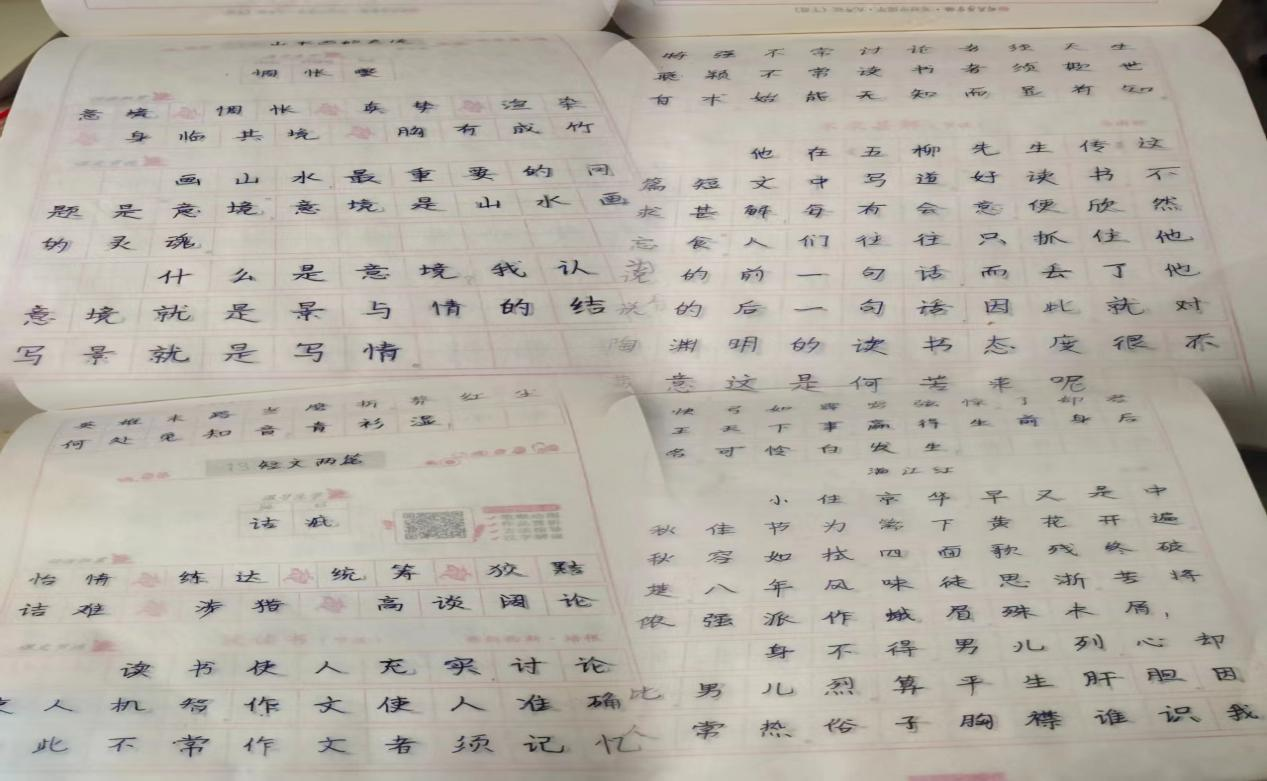 山水画的意境
惆怅嘿
意境 惆怅 真挚 渲染
身临其境 胸有成竹
画山水最重要的问
题是意境意境是山水画
的灵魂
什么是意境我认
意境就是景与情的结
写景就是写情。
特强不常讨论者须天生
聪颖不常读书者须欺世
有术始能无知而显有知
他在五柳先生传这
篇短文中写道好读书不
求甚解每有会意便欣然
忘食人们往往只抓住他
说的前一句话而丢了他
的后一句话因此就对
陶渊明的读书态度很不
意这是何苦来呢
英雄末路当磨折莽红尘
何处觅知音青衫湿
13 短文两篇
诘疵
怡情 练达 统筹 狡黠
诘难 涉猎 高谈阔论
读书使人充实讨论
人机智作文使人准确
此不常作文者须记忆
快弓如霹雳弦惊了却君
王天下事赢得生前身后
名可怜白发生
满江红
小住京华早又是中
秋佳节为篱下黄花开遍
秋容如拭四面歌残终破
楚八年风味徒思浙苦将
侬强派作蛾眉殊未屑,
身不得男儿列心却
比男儿烈算平生肝胆因
人常热俗子胸襟谁识我